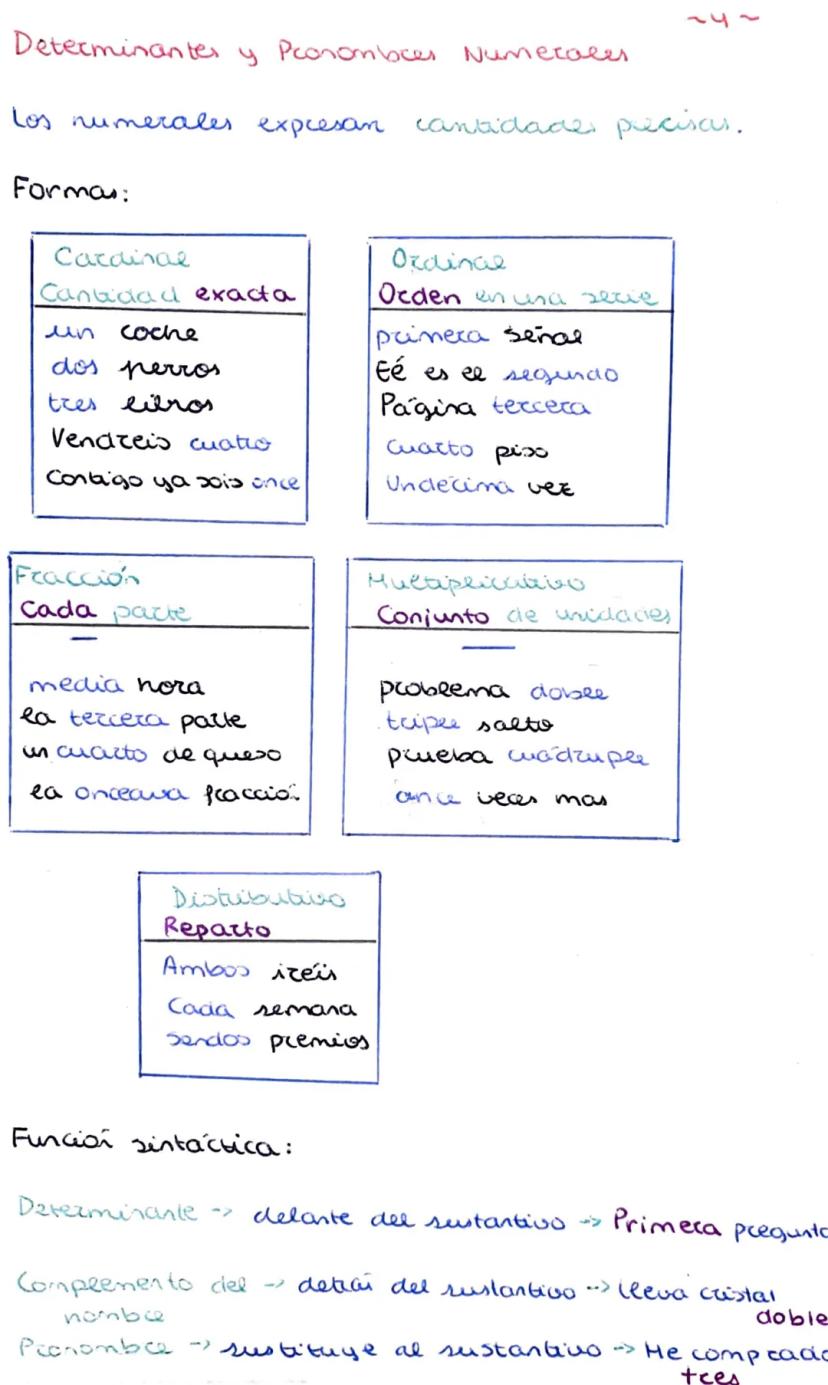 ~4~
Determinantes y Pronombres Numerales
Los numerales expresan cantidades precisas.
Formas:
Cardinal
Cantidad exacta
un coche
dos perros
tres libros
Vendreis cuatro
Contigo ya sois once
Ordinal
Orden en una serie
primera señal
Él es el segundo
Página tercera
Cuarto piso
Undécima vez
Fracción
Cada parte
media hora
la tercera parte
un cuarto de queso
la onceava fracción
Multiplicativo
Conjunto de unidades
problema doble
triple salto
prueba cuádruple
once veces mas
Distributivo
Reparto
Ambos iréis
Cada semana
sendos premios
Función sintáctica:
Determinante -> delante del sustantivo -> Primera pregunta
Complemento del -> detrás del sustantivo -> lleva cristal
nombre doble
Pronombre -> sustituye al sustantivo -> He comprado
tres